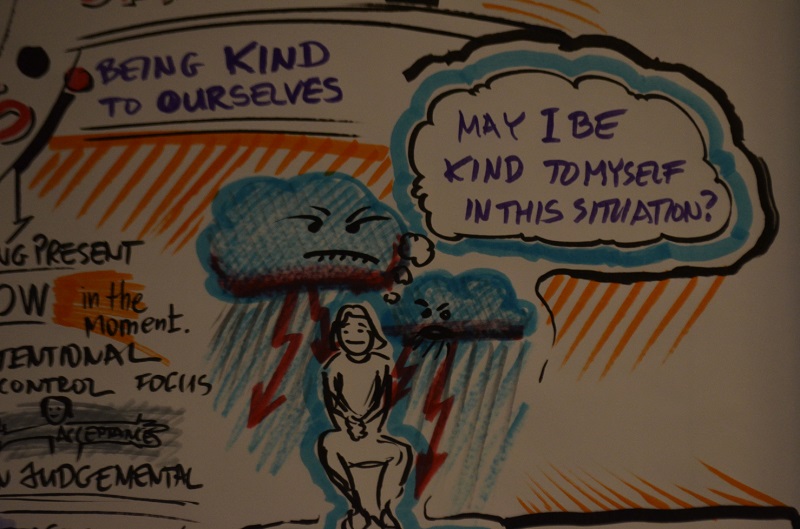 BEING KIND
TO OURSELVES
MAY I BE
KIND TO MYSELF
IN THIS SITUATION?
NG PRESENT
OW in the
moment.
TENTIONAL
CONTROL FOCUS
ACCEPTANCE
N JUDGEMENTAL